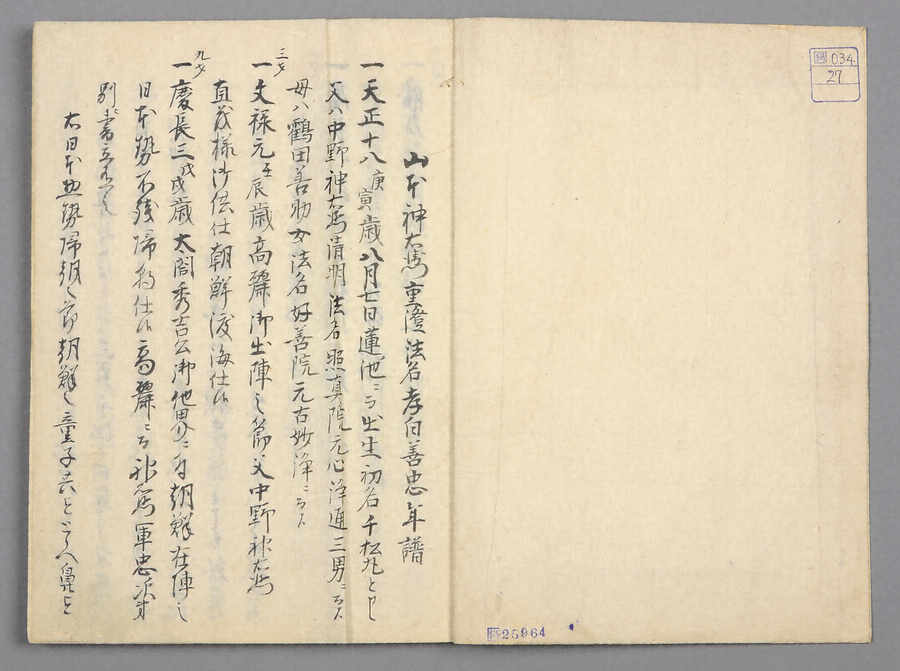 山本神右衛門重澄法名孝白善忠年譜
一天正十八庚寅歳八月七日蓮池ニ而出生初名千松丸と申
父ハ中野神右衛門清明法名照真院元心浄通三男ニ而
母ハ鶴田善助女法名好善院元古妙浄ニ而
三才
一文禄元壬辰歳高麗御出陣之節父中野神右衛門
直茂様御供仕朝鮮渡海仕候
九才
一慶長三戊戌歳太閤秀吉公御他界ニ付朝鮮在陣之
日本勢不残帰朝仕候高麗ニ而神右衛門軍忠次第
別ニ書之
右日本惣勢帰朝之節朝鮮之童子共をとらへ鼻を
図 034
27
図 25964